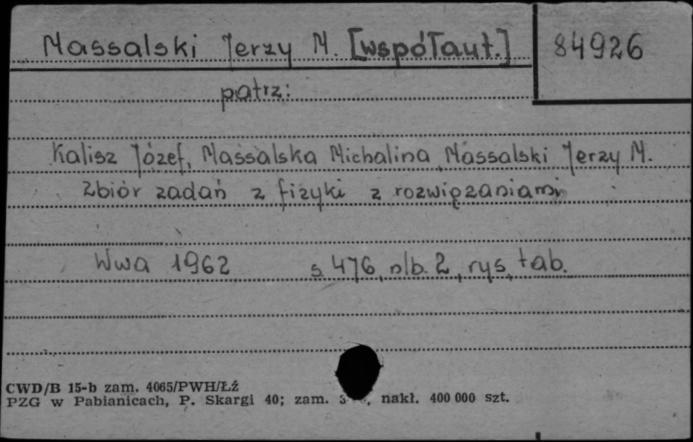 Massalski Jerzy M. [współaut.] 84926
patrz:
Kalisz Józef, Massalska Michalina, Massalski Jerzy M.
Zbiór zadań z fizyki z rozwiązaniami
Wwa 1962 s. 476, nlb. 2, rys., tab.
CWD/B 15-b zam. 4065/PWH/ŁŹ
PZG w Pabianicach, P. Skargi 40; zam. nakł. 400 000 szt.